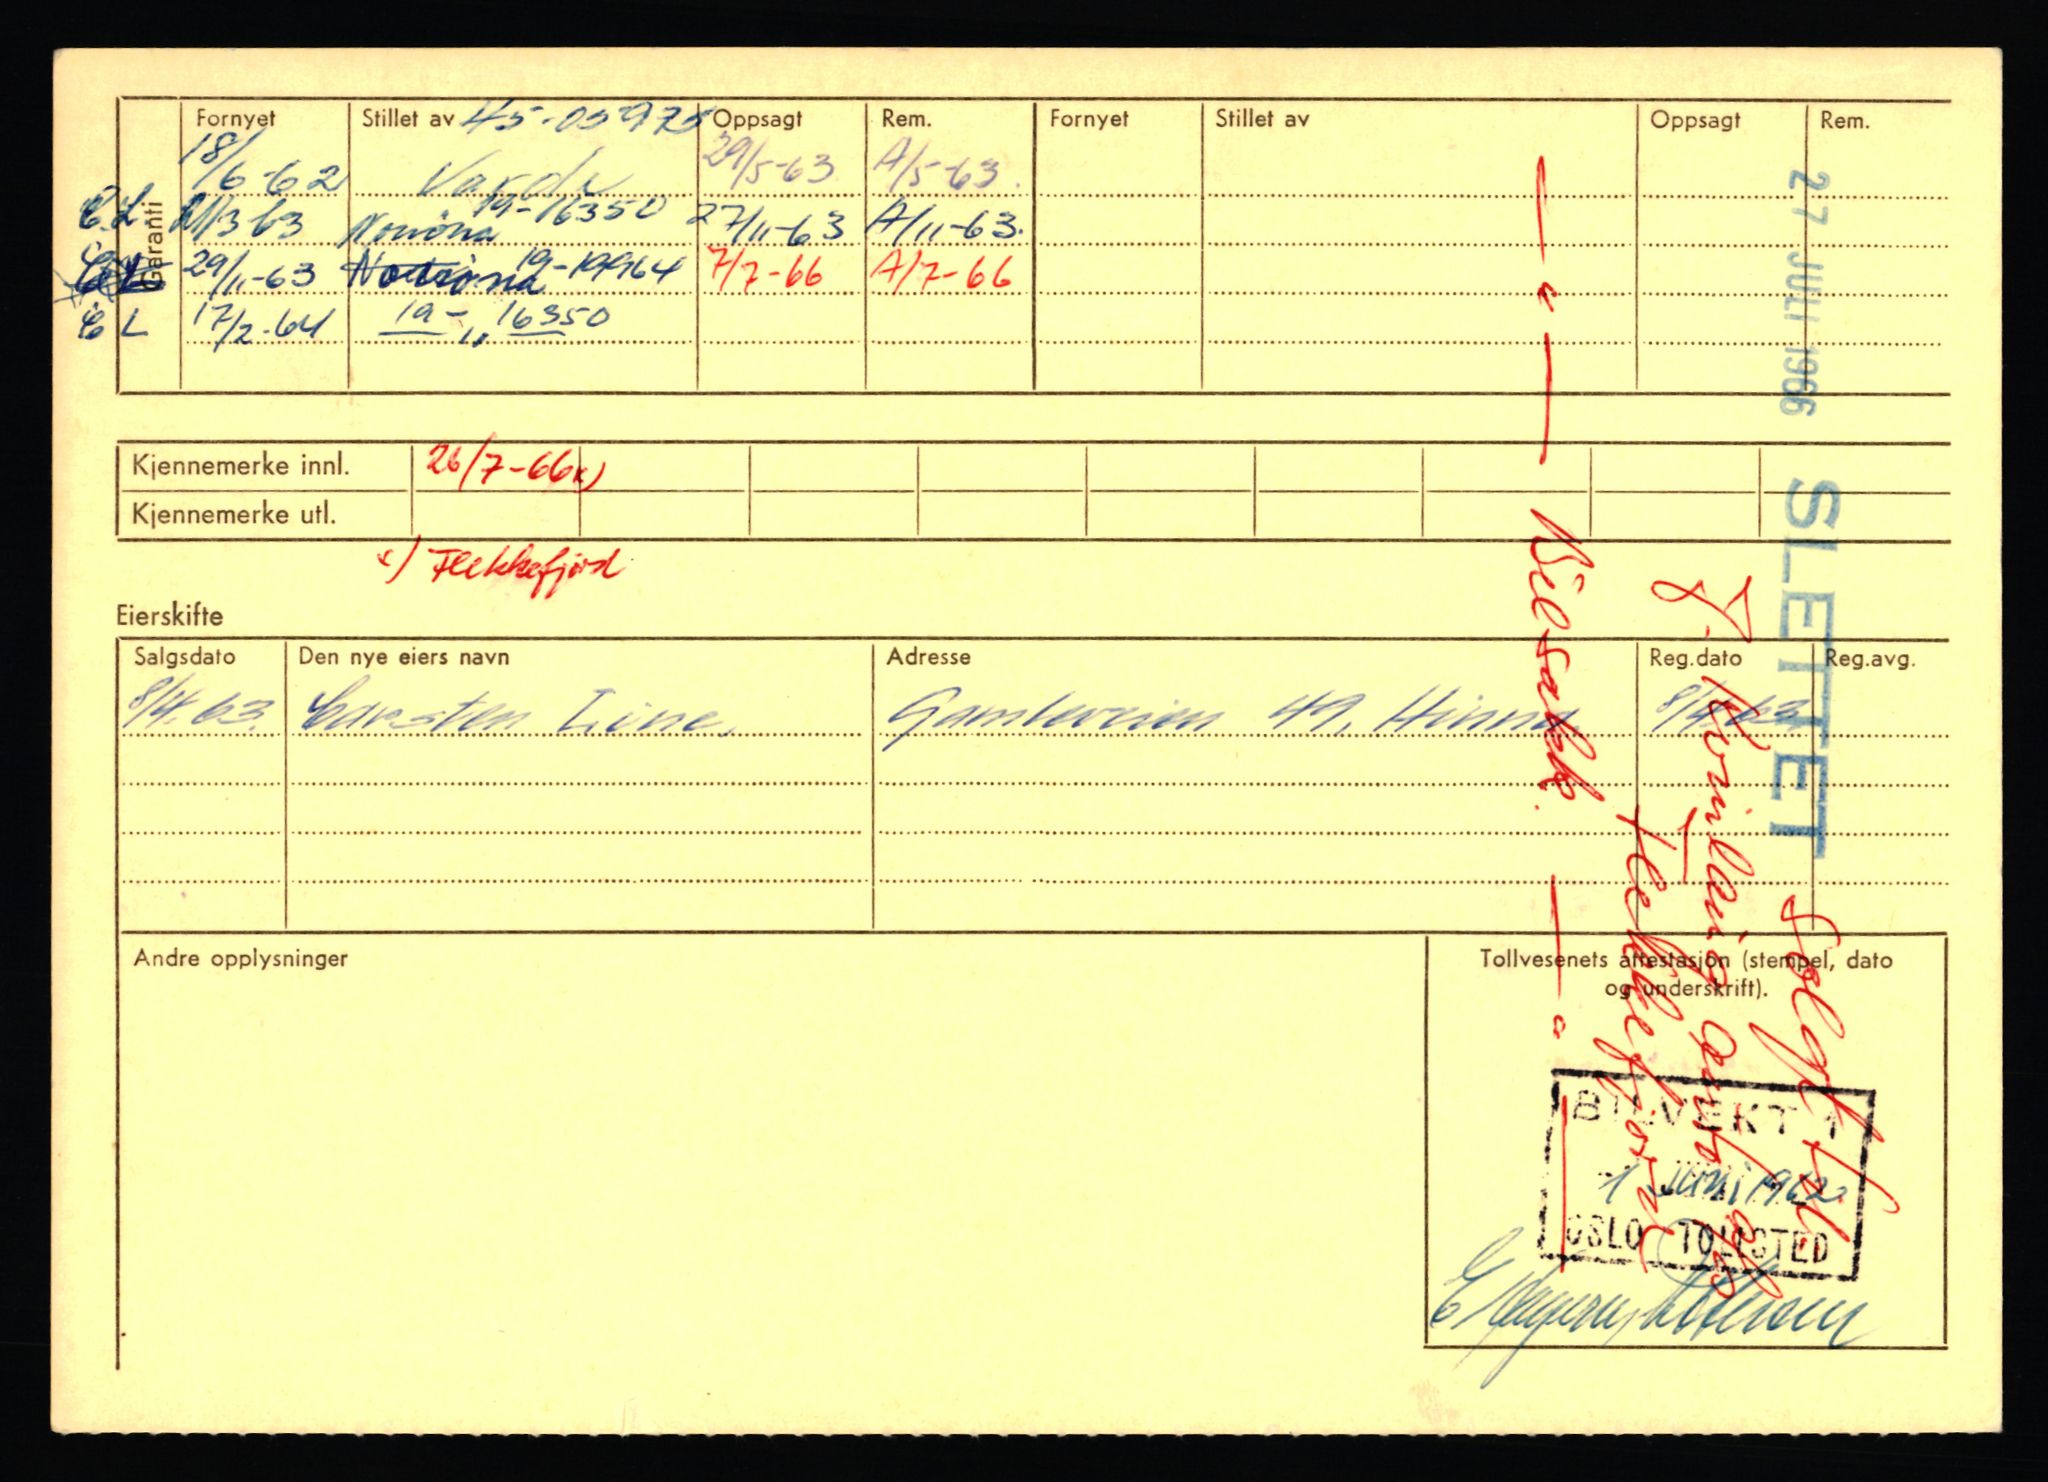 Garanti
Fornyet Stillet av 45-05975 Oppsagt Rem. Fornyet Stillet av Oppsagt Rem.
18/6-62 Varde 29/5-63 A/5-63.
C.L. 3 63 Norrøna 19-16350 27/11-63 A/11-63.
29/11-63 Norrøna 19-19964 7/7-66 A/7-66
C L 17/2-64 19- " 16350
Kjennemerke innl. 26/7-66x)
Kjennemerke utl.
x) Flekkefjord
Eierskifte
Salgsdato Den nye eiers navn Adresse Reg.dato Reg.avg.
8/4.63. Carsten Line, Gamleveien 49, Hinna 8/4.63
Andre opplysninger
Tollvesenets attestasjon (stempel, dato
og underskrift).
BILVEKT 1
1 JUNI 1962
OSLO TOLLSTED
27 JULI 1966 SLETTET
Solgt til
J. Kvinlaug auto %
Flekkefjord
— " — Bilsakk. — " —